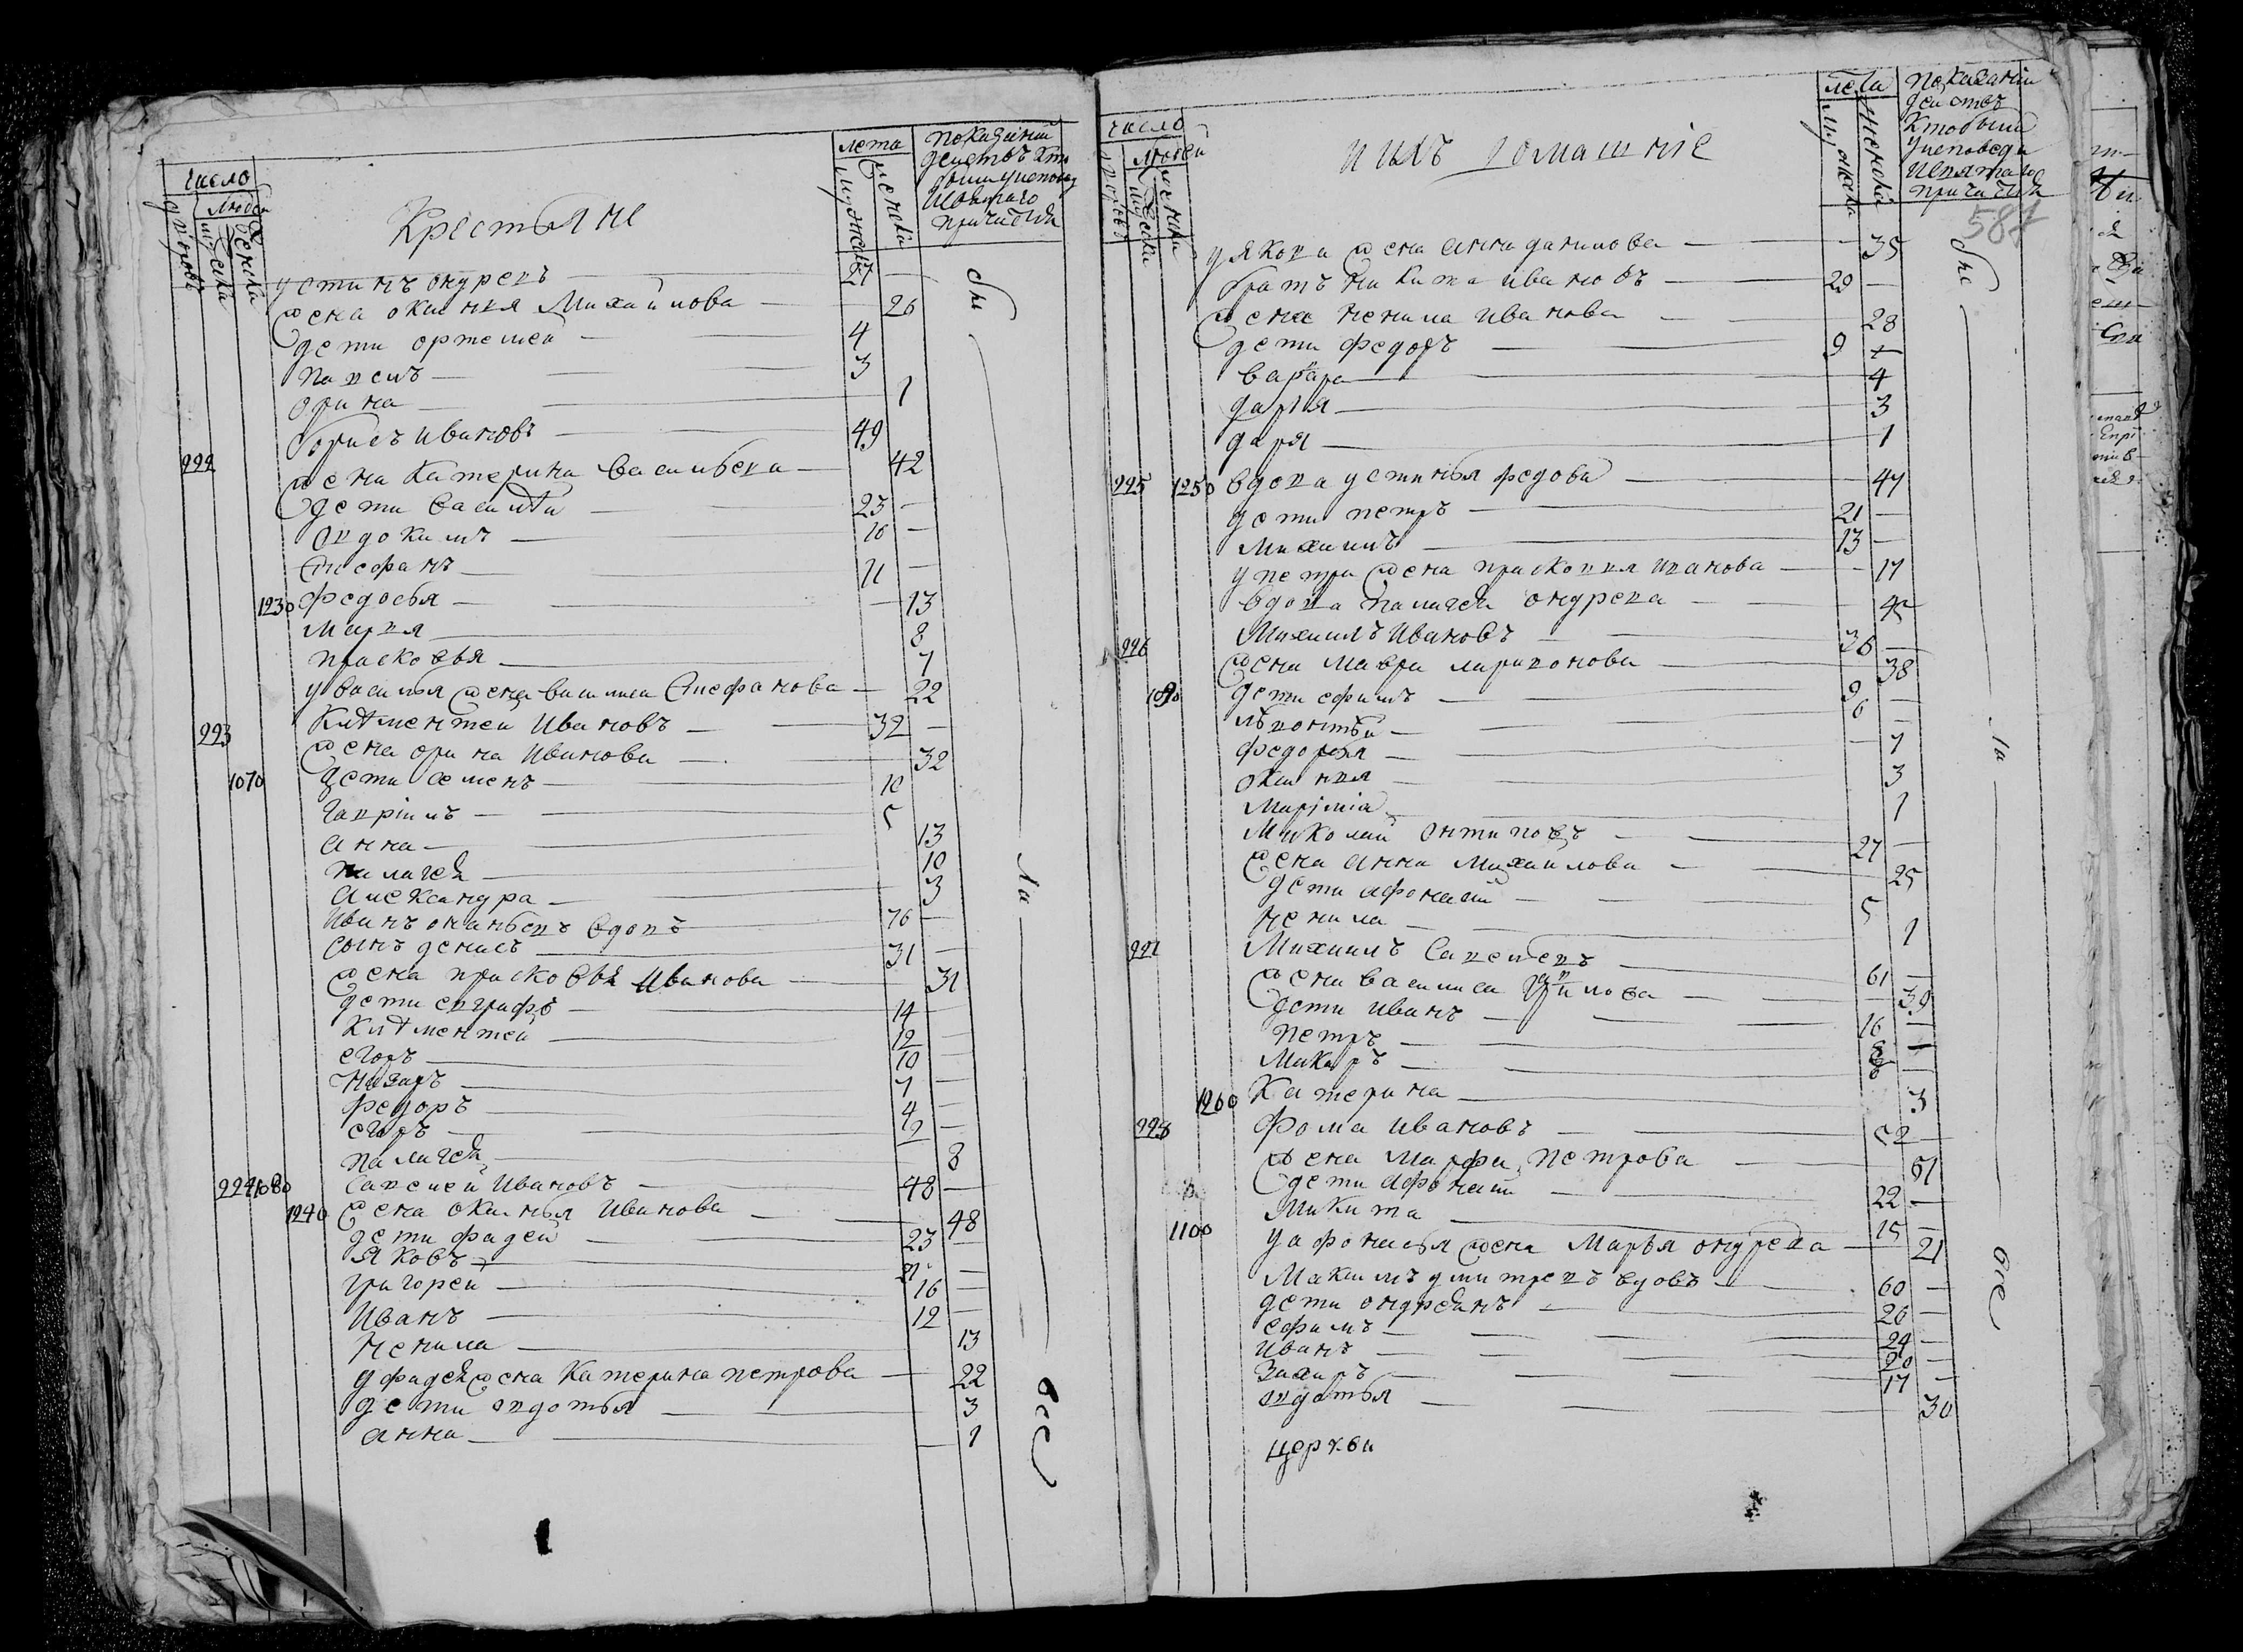 число
людей
дворовъ
мужска
женска
Крестьяне
лета
мужска
женска
показании
действъ кто
былъ у исповед
и святаго
причастия
устинъ ондревъ 27
жена оксинья Михайлова 26
дети ортемей 4
павелъ 3
орина 1
222 борисъ Ивановъ 49
жена Катерина васильева 42
дети василей 23
овдокимъ 16
Стефанъ 11
1230 федосья 13
Марья 8
прасковья 7
у василья жена василиса Стефанова 22
223 Клементей Ивановъ 32
жена орина Иванова 32
1070 дети семенъ 10
гаврiилъ 5
анна 13
палагея 10
александра 3
Иванъ онаньевъ вдовъ 76
сынъ денисъ 31
жена прасковья Иванова 31
дети евграфъ 14
Клементей 12
егоръ 10
Назаръ 7
федоръ 4
егоръ 2
палагея 8
224 1080 савелей Ивановъ 48
1240 жена оксинья Иванова 48
дети фадей 23
Яковъ 21
григорей 16
Иванъ 12
ненила 13
у фадея жена Катерина петрова 22
дети овдотья 3
анна 1
сiи
ла
все
число
людей
дворовъ
мужска
женска
и ихъ домашнiе
лета
мужска
женска
показании
действъ
кто былъ
у исповеди
и святаго
причастия
587
у якова жена анна данилова 35
братъ никита ивановъ 29
жена ненила Иванова 28
дети федоръ 9
варвара 4
дарья 3
даря 1
225 1250 вдова устинья федова 47
дети петръ 21
михаилъ 13
у петра жена прасковья иванова 17
вдова палагея ондрева
226 Михаилъ Ивановъ 36
жена Мавра ларионова 38
1090 дети ефимъ 9
леонтей 6
федосья 7
оксинья 3
Марiмiа 1
Миколай онтиповъ 27
жена анна Михайлова 25
дети афонасей 5
ненила 1
227 Михаилъ савельевъ 61
жена василиса гаврилова 39
дети иванъ 16
петръ
Макаръ
1260 Катерина 3
228 фома ивановъ 52
жена Марфа петрова 51
дети афонасей 22
Микита 15
1100 у афонасья жена Марья ондрева 21
Максимъ дмитревъ вдовъ 60
дети ондреянъ 26
ефимъ 24
Иванъ 20
Захаръ 17
овдотья 30
церкви
сiе
ла
все